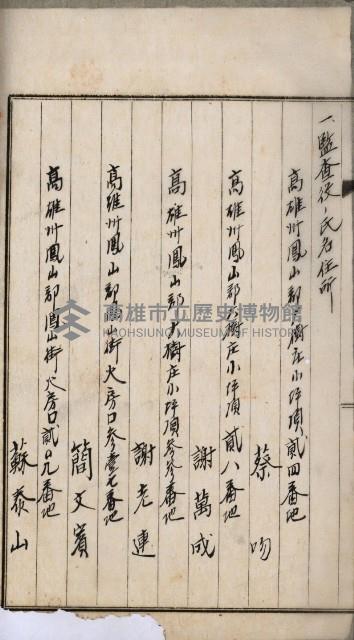 一、監查役ノ氏名住所
高雄州鳳山郡大樹庄小坪頂貳四番地
蔡吻
高雄州鳳山郡大樹庄小坪頂貳八番地
謝萬成
高雄州鳳山郡大樹庄小坪頂參參番地
謝老連
高雄州鳳山郡鳳山街火房口參壹七番地
簡文賓
高雄州鳳山郡鳳山街火房口貳口九番地
蘇泰山
高雄市立歷史博物館
KAOHSIUNG MUSEUM OF HISTORY